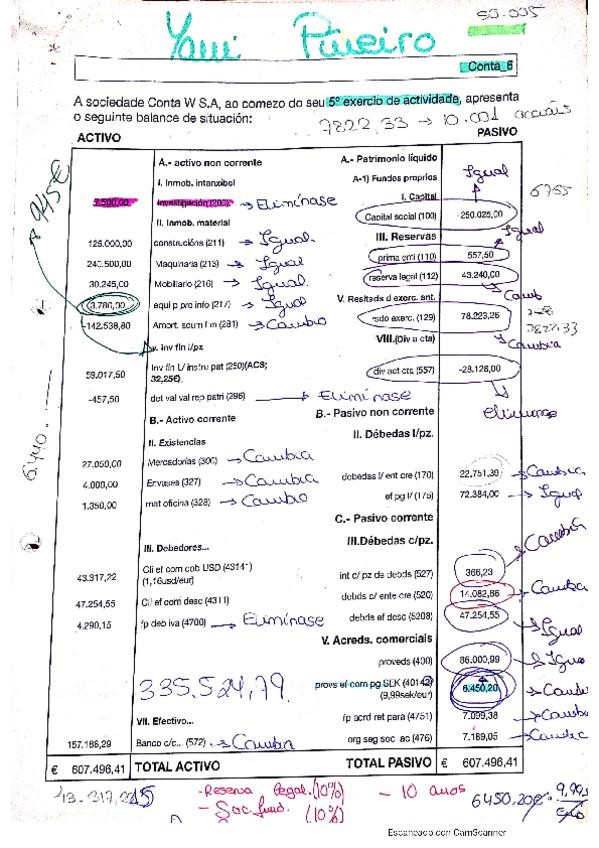 50.005
Yami Piñeiro
Conta_6
A sociedade Conta W S.A, ao comezo do seu 5º exercio de actividade, apresenta
o seguinte balance de situación:
7822,33 → 10.001 accións
ACTIVO
PASIVO
A.- activo non corrente
A.- Patrimonio líquido
Igual
I. Inmob. intanxibel
A-1) Fundos proprios
945€
investigación (200) → Elimínase
I. Capital
6755
II. Inmob. material
Capital social (100) 250.025,00
125.000,00 construcións (211) → Igual
III. Reservas
Igual
240.500,00 Maquinaria (213) → Igual
prima emi (110) 557,50
30.245,00 Mobiliario (216) → Igual
reserva legal (112) 43.240,00
Camb
3.780,00 equi p pro info (217) → Igual
V. Resltads d exerc. ant.
-142.538,80 Amort. acum I m (281) → Cambio
rsdo exerc. (129) 78.223,26
7822,33
v. inv fin l/pz
VIII.(Div a cta)
Cambia
59.017,50 Inv fin L/ instru pat (250)(ACS;
32,25€)
div act cta (557) -28.126,00
-457,50 det val val rep patri (296) → Elimínase
elimínase
B.- Activo corrente
B.- Pasivo non corrente
6.440.
II. Existencias
II. Débedas l/pz.
27.050,00 Mercadorías (300) → Cambia
debedas l/ ent cre (170) 22.751,39 → Cambia
4.000,00 Envases (327) → Cambia
1.350,00 mat oficina (328) → Cambio
ef pg l/ (175) 72.384,00 → Igual
C.- Pasivo corrente
III. Debedores...
III.Débedas c/pz.
Cambia
43.317,22 Cli ef com cob USD (43141)
(1,16usd/eur)
int c/ pz de debds (527) 366,23
47.254,55 Cli ef com desc (4311)
debds c/ ente cre (520) 14.082,86 → Cambia
4.290,15 fp deb iva (4700) → Elimínase
debds ef desc (5208) 47.254,55 → Igual
V. Acreds. comerciais
proveds (400) 86.000,99 → Igua
335.524,79
provs ef com pg SEK (40142)
(9,99sek/eur)
6.450,20 → Cambi
fp acrd ret para (4751) 7.099,38 → Cambi
VII. Efectivo...
157.186,29 Banco c/c... (572) → Cambia
org seg soc ac (476) 7.189,05 → Cambia
€ 607.496,41 TOTAL ACTIVO
TOTAL PASIVO € 607.496,41
-Reserva legal (10%)
- 10 anos
- Soc. fund. (10%)
Escaneado con CamScanner